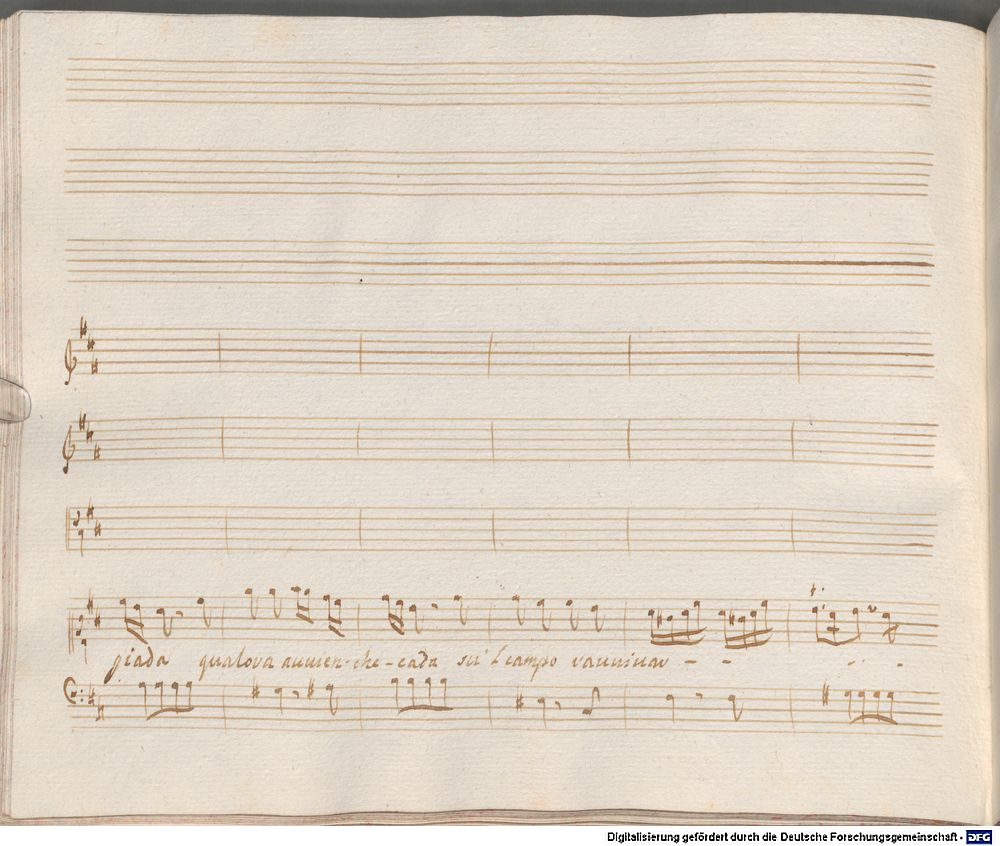 giada qualora avvien-che-cada su'l campo ravvivar - - - - -
Digitalisierung gefördert durch die Deutsche Forschungsgemeinschaft - DFG